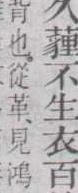 久不生衣百
背也。從革、見鴻